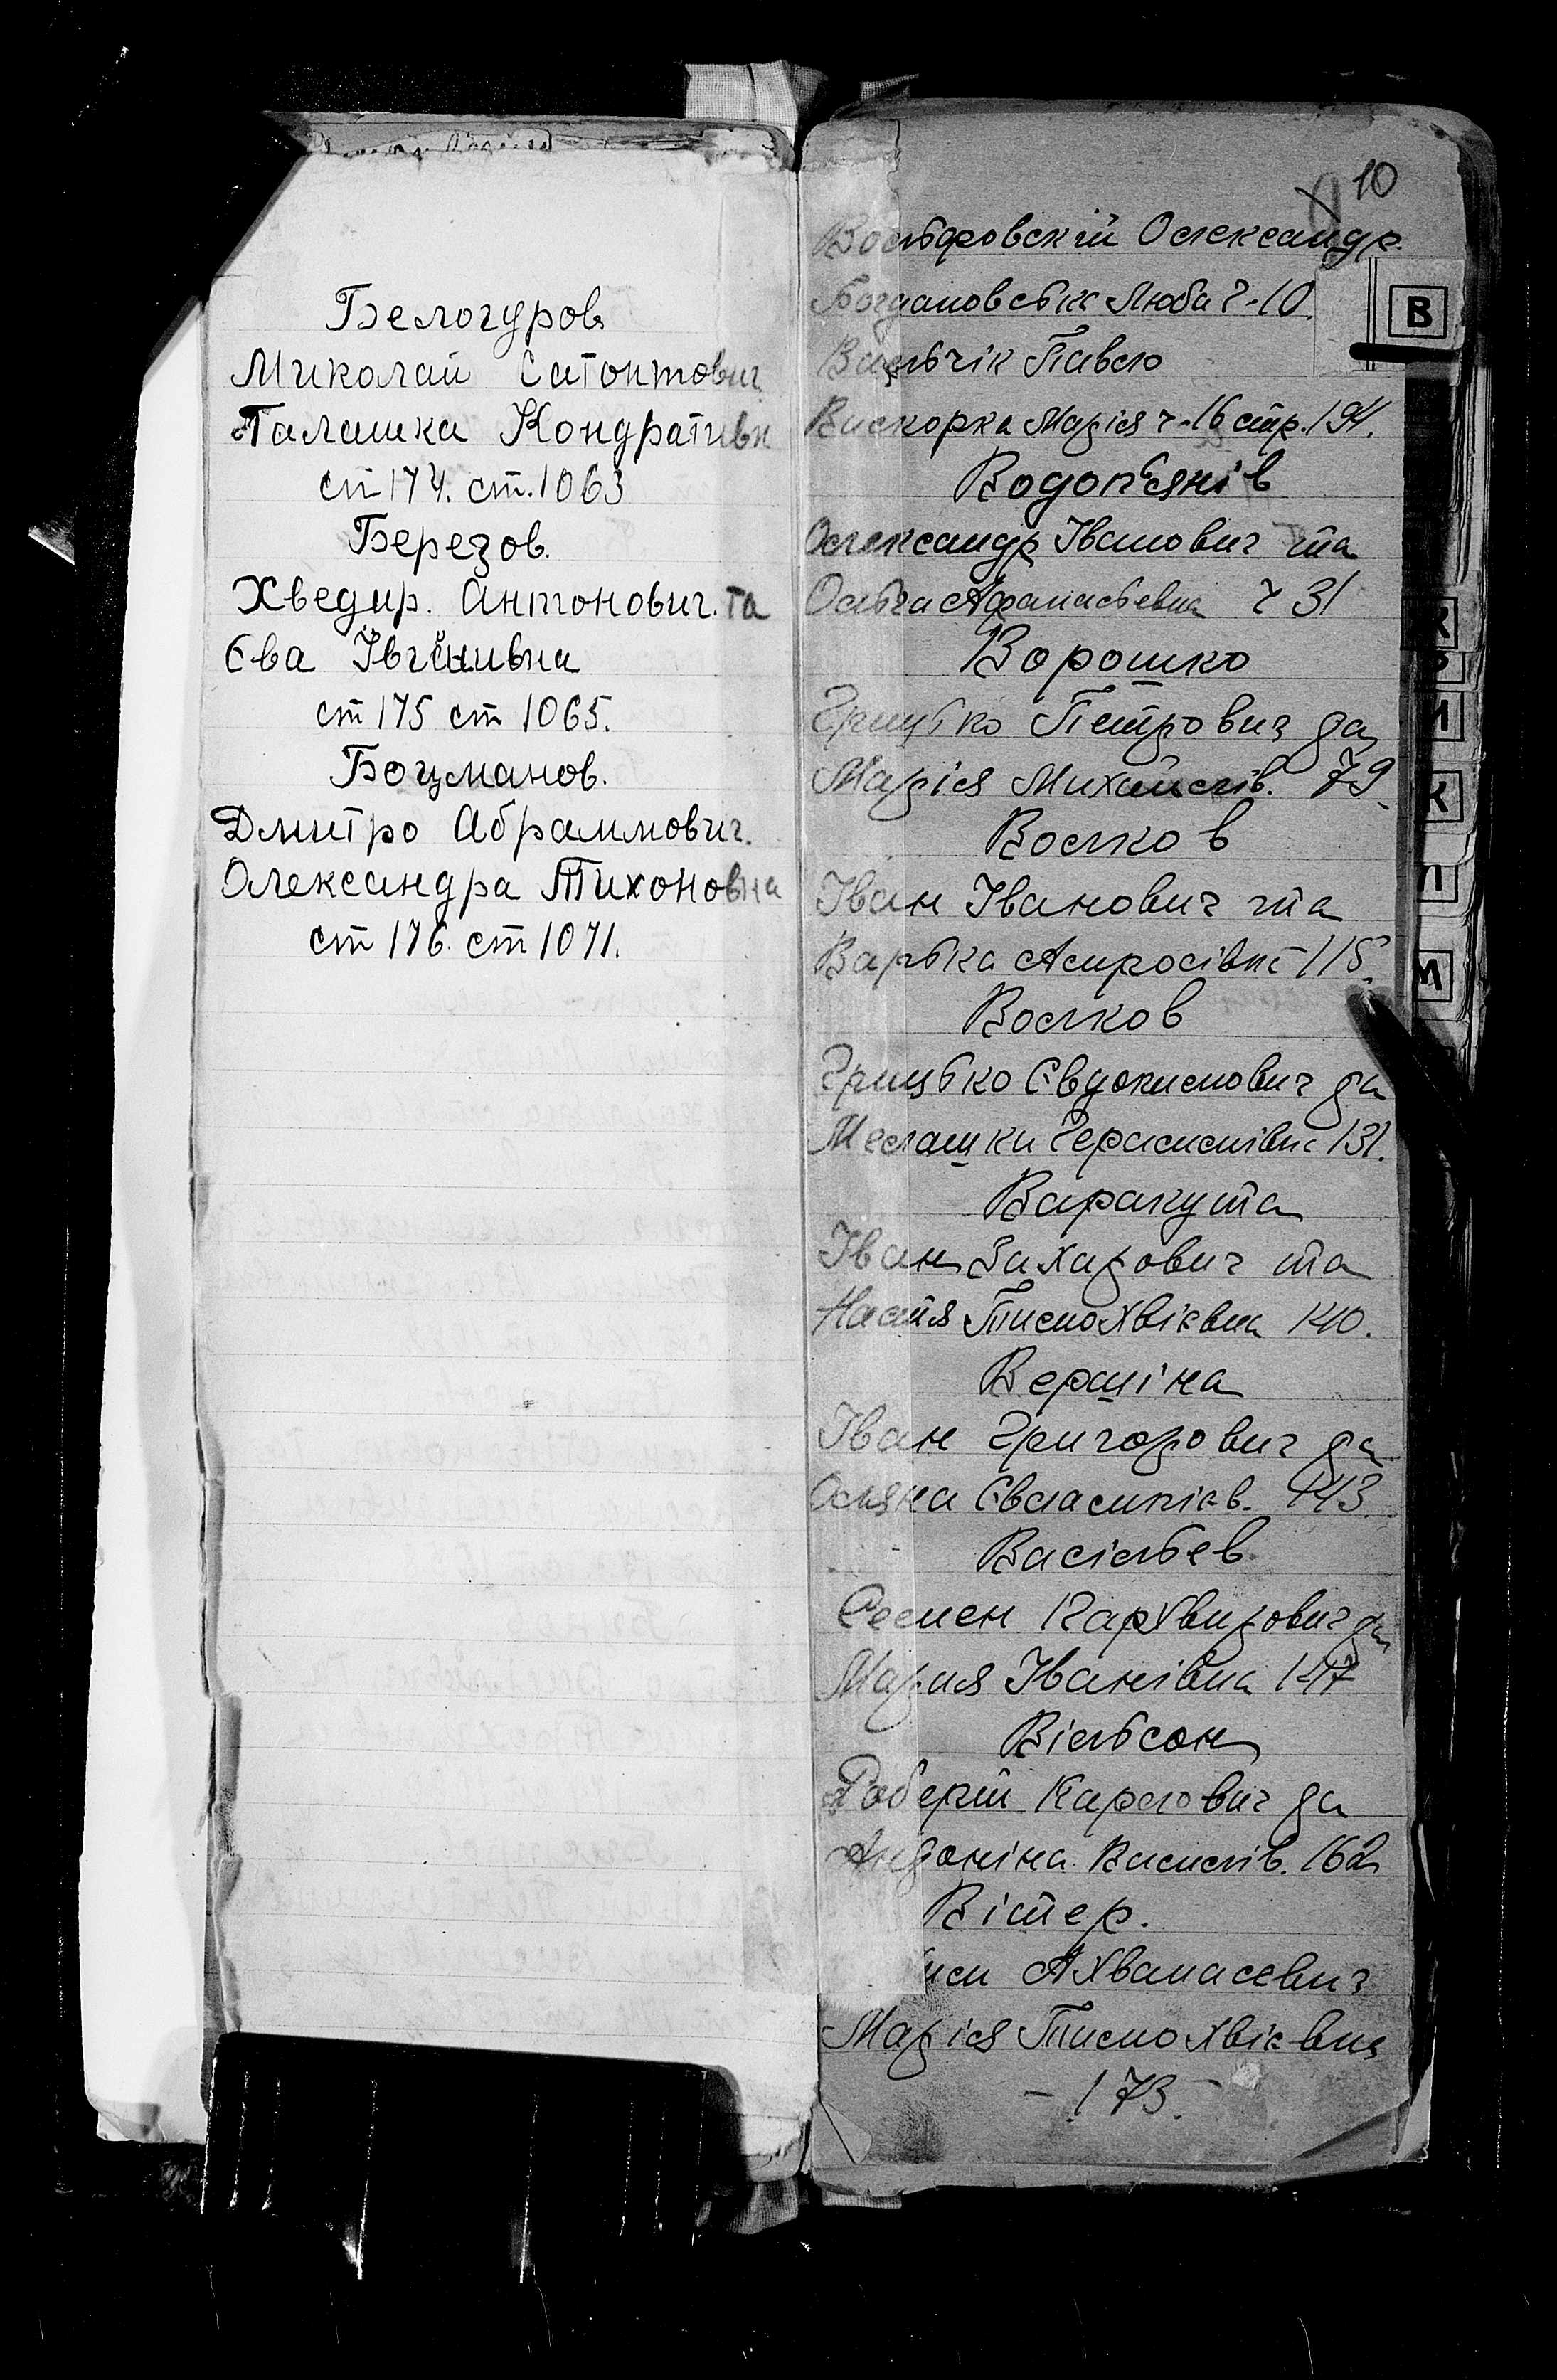 Белогуров
Миколай Сатонтович
Палашка Кондративн
ст 174. ст. 1063
Березов.
Хведир. Антонович. та
Єва Івгенивна
ст 175 ст 1065.
Боцманов.
Дмитро Абраммович.
Олександра Тихоновна
ст 176. ст 1071.
10
Вольфовскій Олександр.
Богдановська Люба ч-10.
Вальчік Павло
Вискорка Марія ч-16 стр. 194.
Водопянів
Олександр Іванович та
Ольга Афанасьевна ч 31
Ворошко
Грицько Петрович да
Марія Михайлів. 79.
Волков
Іван Іванович та
Варька Амросівна 115.
Волков
Грицько Євдокимович да
Мелашки Герасимівна 131.
Варакута
Іван Захарович та
Настя Тимохвієвна 140.
Вершіна
Іван Григорович да
Оляна Євлампієв. 143.
Васільєв
Семен Кархвирович да
Мария Іванівна 147
Вільсон
Роберт Карлович да
Антоніна Василів. 162
Вітер.
Ахванасевич
Марія Тимохвієвна
- 173. -
В
К
М